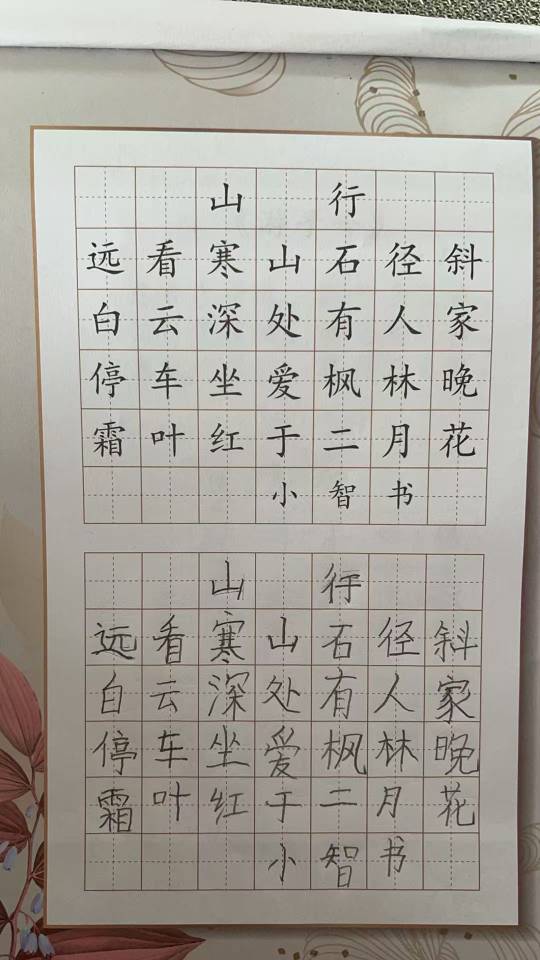 山行
远看寒山石径斜
白云深处有人家
停车坐爱枫林晚
霜叶红于二月花
小智书
山行
远看寒山石径斜
白云深处有人家
停车坐爱枫林晚
霜叶红于二月花
小智书